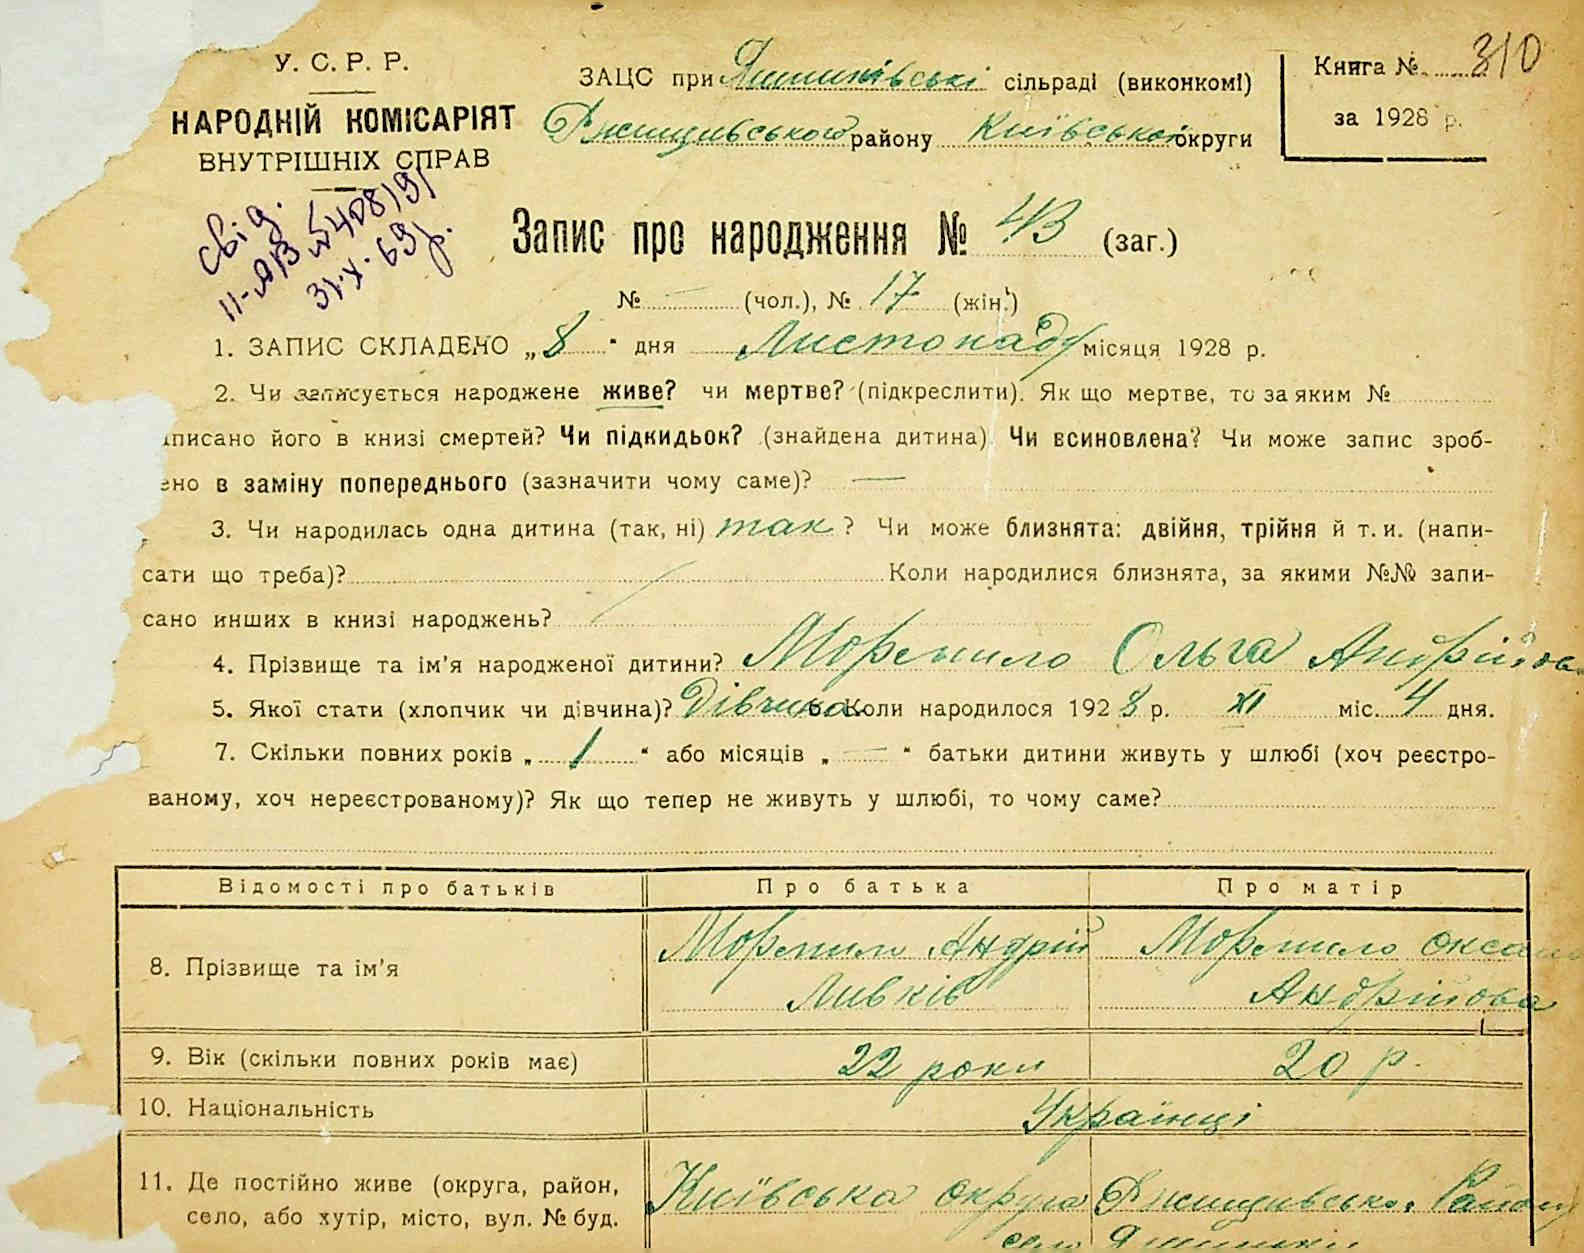 У. С. Р. Р.
НАРОДНІЙ КОМІСАРІЯТ
ВНУТРІШНІХ СПРАВ
ЗАЦС при Яшниківські сільраді (виконкомі)
Ржищівського району Київської округи
Книга № 310
за 1928 р.
свід.
31.X.69р.
Запис про народження № 43 (заг.)
№ — (чол.), № 17 (жін.)
1. ЗАПИС СКЛАДЕНО „8" дня Листопаду місяця 1928 р.
2. Чи записується народжене живе? чи мертве? (підкреслити). Як що мертве, то за яким №
писано його в книзі смертей? Чи підкидьок? (знайдена дитина) Чи всиновлена? Чи може запис зроб-
ено в заміну попереднього (зазначити чому саме)? —
3. Чи народилась одна дитина (так, ні) так? Чи може близнята: двійня, трійня й т. и. (напи-
сати що треба)? Коли народилися близнята, за якими №№ запи-
сано инших в книзі народжень?
4. Прізвище та ім'я народженої дитини? Ольга Андрійов
5. Якої стати (хлопчик чи дівчина)? Дівчина Коли народилося 1928 р. XI міс. 4 дня.
7. Скільки повних років „1" або місяців „—" батьки дитини живуть у шлюбі (хоч реєстро-
ваному, хоч нереєстрованому)? Як що тепер не живуть у шлюбі, то чому саме?
Відомості про батьків Про батька Про матір
8. Прізвище та ім'я Андрій Оксана
Андрійова
9. Вік (скільки повних років має) 22 роки 20 р.
10. Національність Українці
11. Де постійно живе (округа, район, Київська округа Ржищівсько. Району
село, або хутір, місто, вул. № буд. село